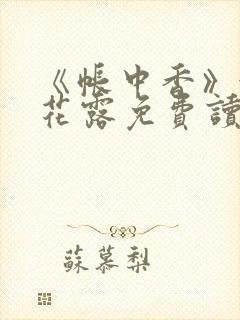 《帳中香》
花露免費讀
蘇慕梨